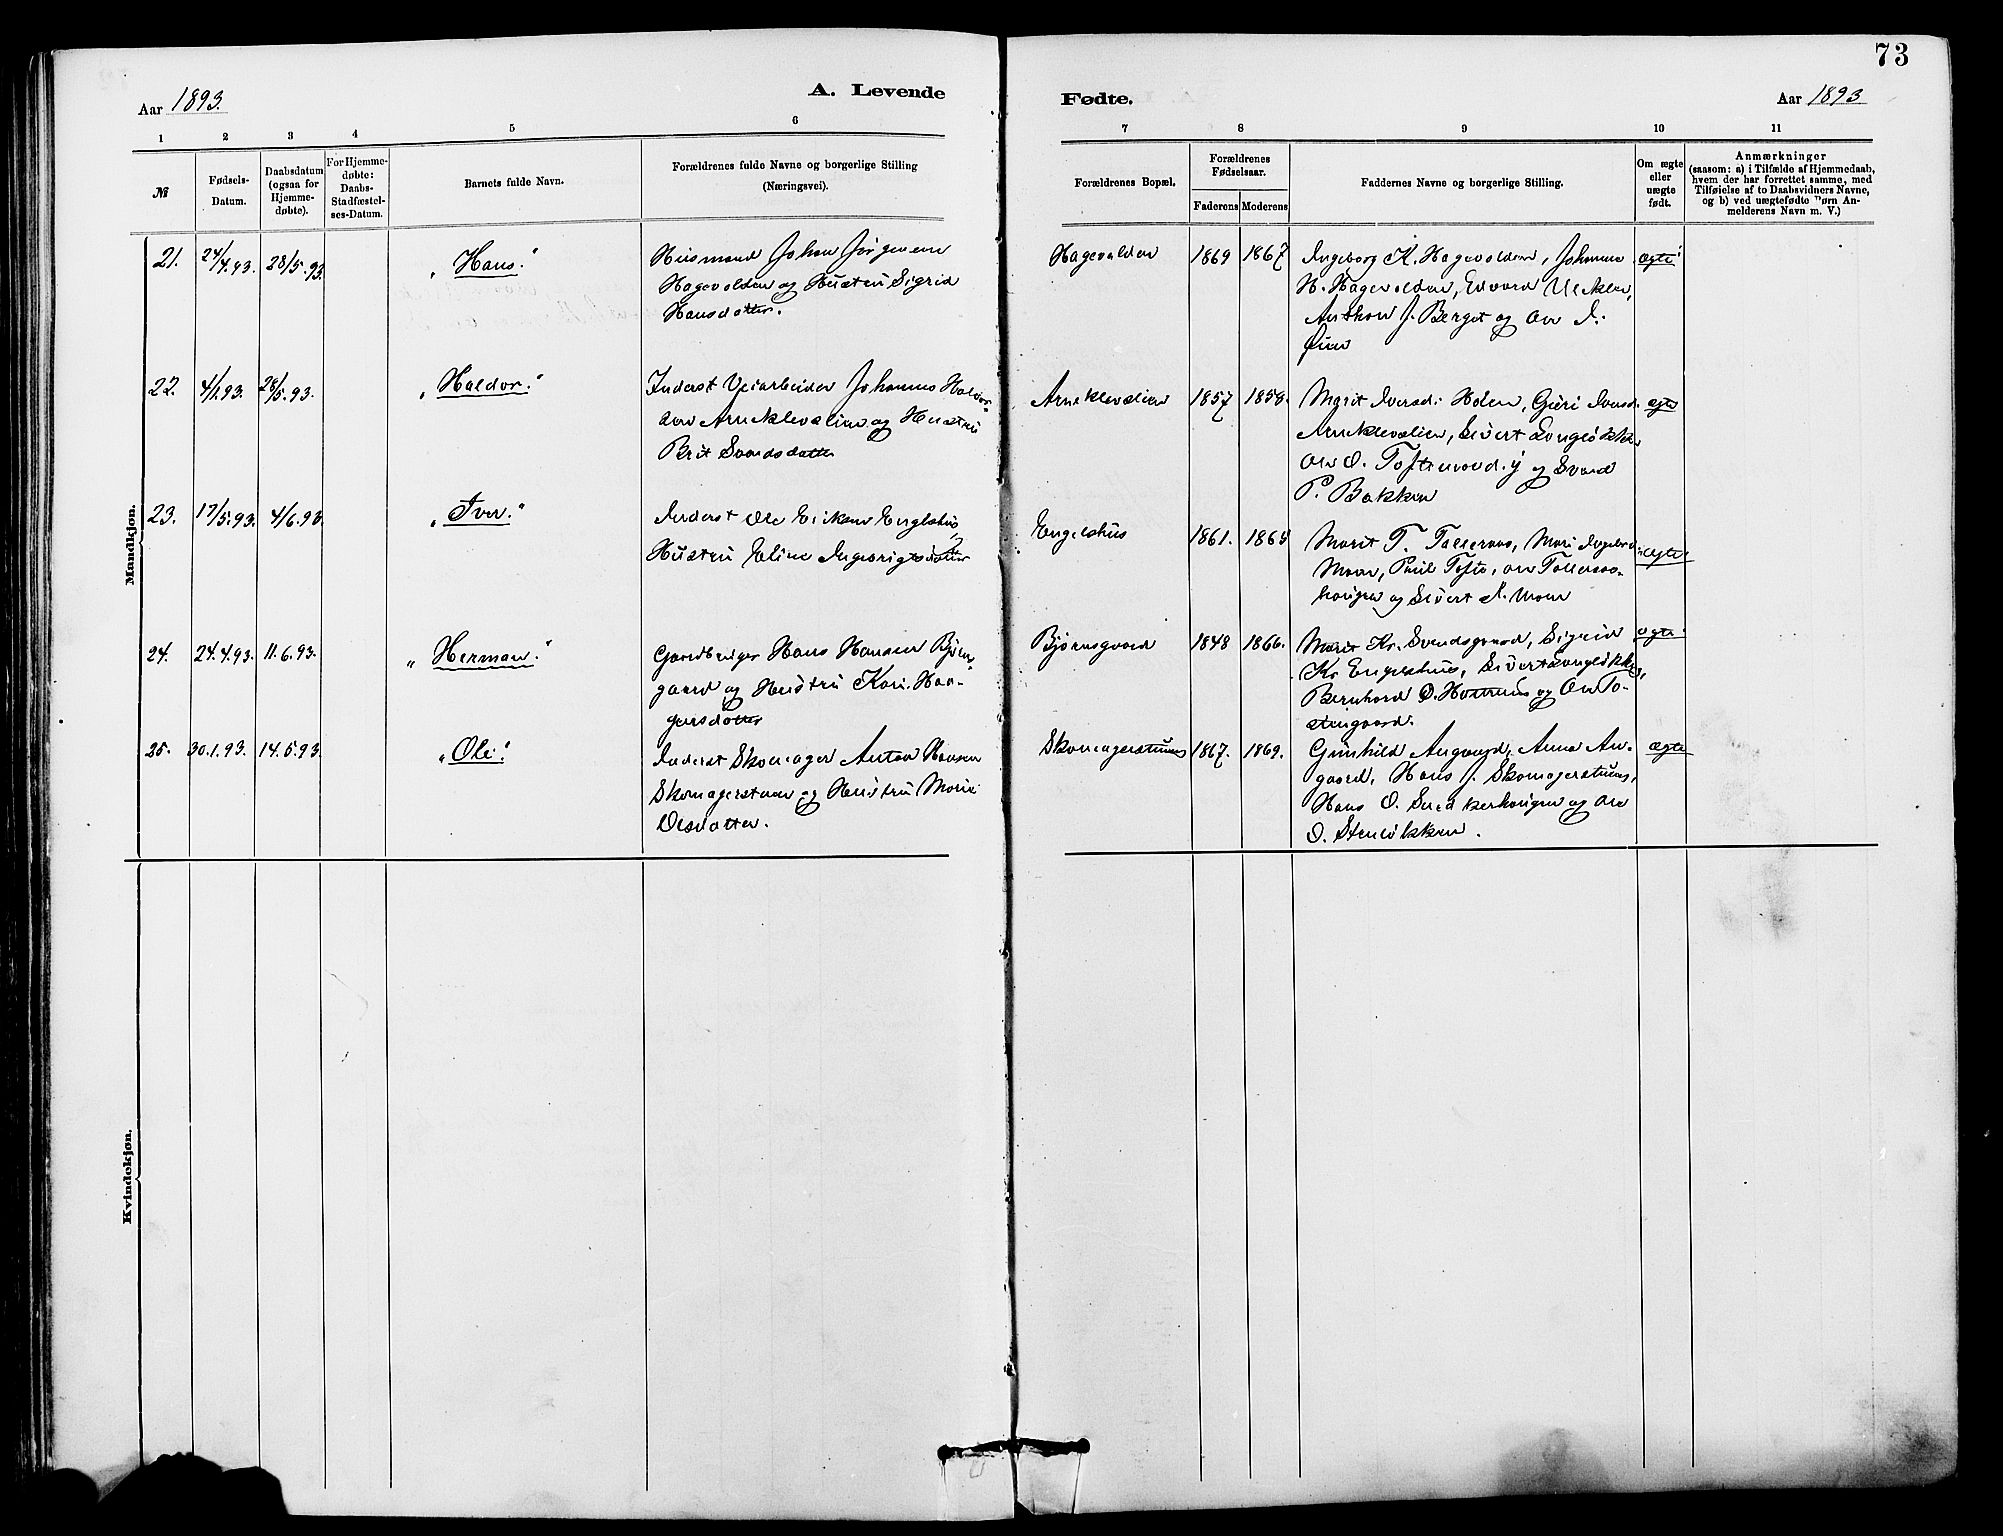 73
Aar 1893.
A. Levende
Fødte.
Aar 1893
1 2 3 4 5 6
7 8 9 10 11
№
Fødsels-
Datum.
Daabsdatum
(ogsaa for
Hjemme-
døbte).
For Hjemme-
døbte:
Daabs-
Stadfæstel-
ses-Datum.
Barnets fulde Navn.
Forældrenes fulde Navne og borgerlige Stilling
(Næringsvei).
Forældrenes Bopæl.
Forældrenes
Fødselsaar.
Faderens Moderens
Faddernes Navne og borgerlige Stilling.
Om ægte
eller
uægte
født.
Anmærkninger
(saasom: a) i Tilfælde af Hjemmedaab,
hvem der har forrettet samme, med
Tilføielse af to Daabsvidners Navne,
og b) ved uægtefødte Børn An-
melderens Navn m. V.)
Mandkjøn.
21. 24/4.93. 28/5.93. "Hans." Husmand Johan Jørgensen
Hagevolden og Hustru Sigrid
Hansdatter.
Hagevolden 1869 1867 Ingeborg K. Hagevolden, Johanna
H. Hagevolden, Edvard
J. Berget og
ægte
22. 4/1.93. 28/5.93. "Haldor." Inderst Veiarbeider Johannes Haldor-
sen Arneklevslien og Hustru
Brit Svendsdatter
Arneklevslien 1857 1858. Marit Iversd. Holen, Guri Iversd.
Arneklevslien, Sivert Engeløkk
O. Toftemoed. y og Svend
P. Bakken
ægte
23. 17/5.93. 4/6.93. "Iver." Inderst Ole Eriksen Engelshus,
Hustru Eline Ingebrigtsdatter
Engelshus 1861. 1865 Marit T. Tølleraas, Mari
Moen, Paul Tofte,
haugen og Sivert I. Moen
ægte
24. 24.4.93. 11.6.93. "Herman." Gaardbruger Hans Hansen Bjørns-
gaard og Hustru Kari Haa-
gensdatter
Bjørnsgaard 1848 1866. Marit Kr. Svendsgaard, Sigrid
Kr. Engelshus, Sivert Engeløkk
Bernhard O. og Ole To-
stengaard.
ægte
25. 30.1.93. 14.5.93 "Ole." Inderst Skomager Anton Hansen
Skomagerstuen og Hustru Marie
Olsdatter.
Skomagerstuen 1867. 1869. Gunhild Angaard, Anna An-
gaard, Hans J. Skomagerstuen,
Hans O. Snedkerhaugen og
O. Stenløkken.
ægte
Kvindekjøn.